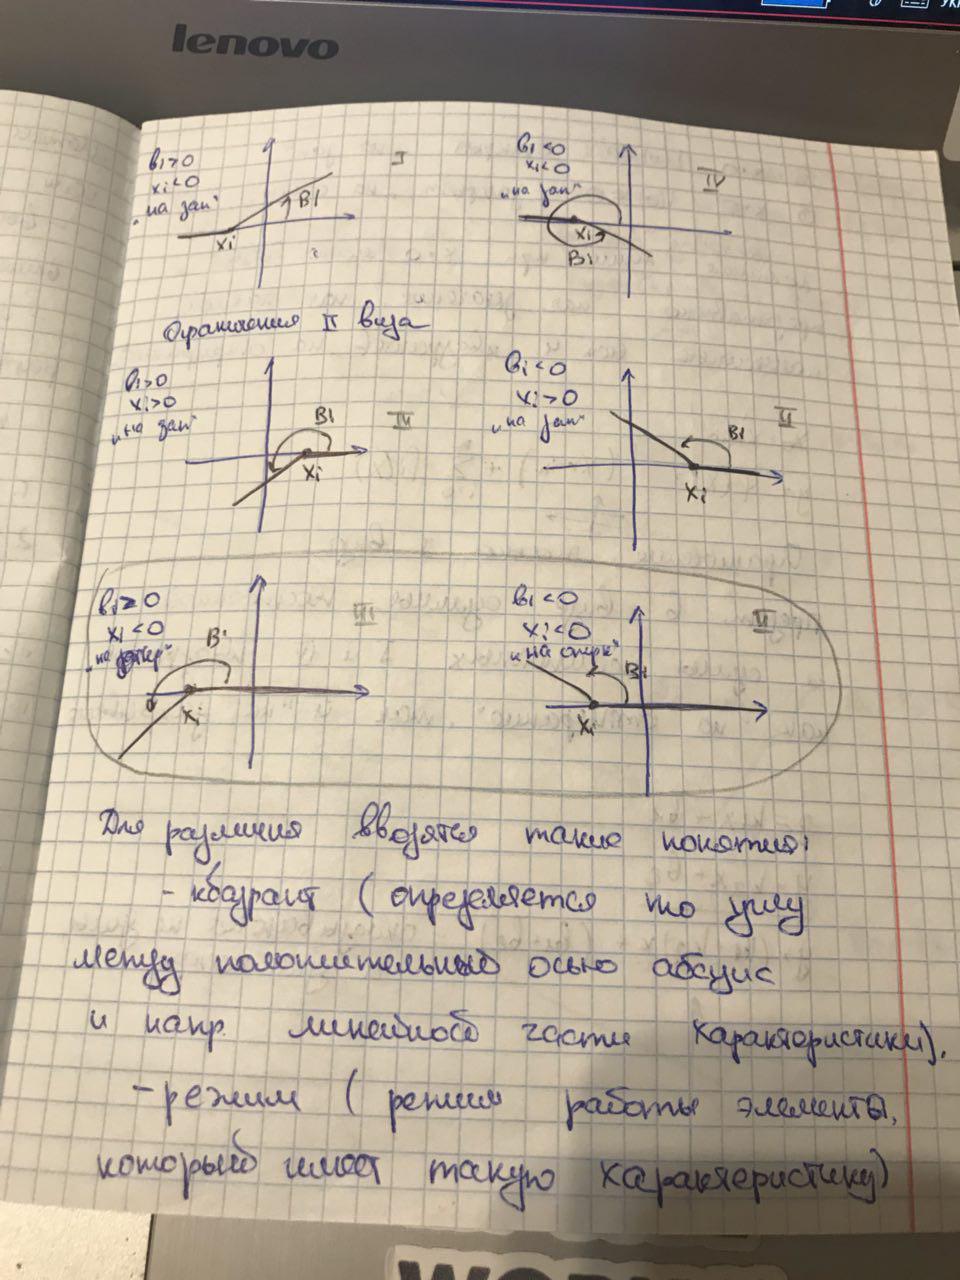 lenovo
в₁>0
xᵢ<0
„на зап"
I
Bi
xi
вi<0
xi<0
„на зап"
IV
xi
Bi
Ограничения II вида
вi>0
xi>0
„на зап"
Bi
xi
вi<0
xi>0
„на зап"
II
Bi
xi
вi≥0
xi<0
III
Bi
xi
вi<0
xi<0
„на откр"
II
Bi
xi
Для различия вводятся такие понятия:
- квадрант (определяется по углу
между положительный осью абсцис
и напр. линейной части характеристики).
- режим (режим работы элемента,
который имеет такую характеристику)